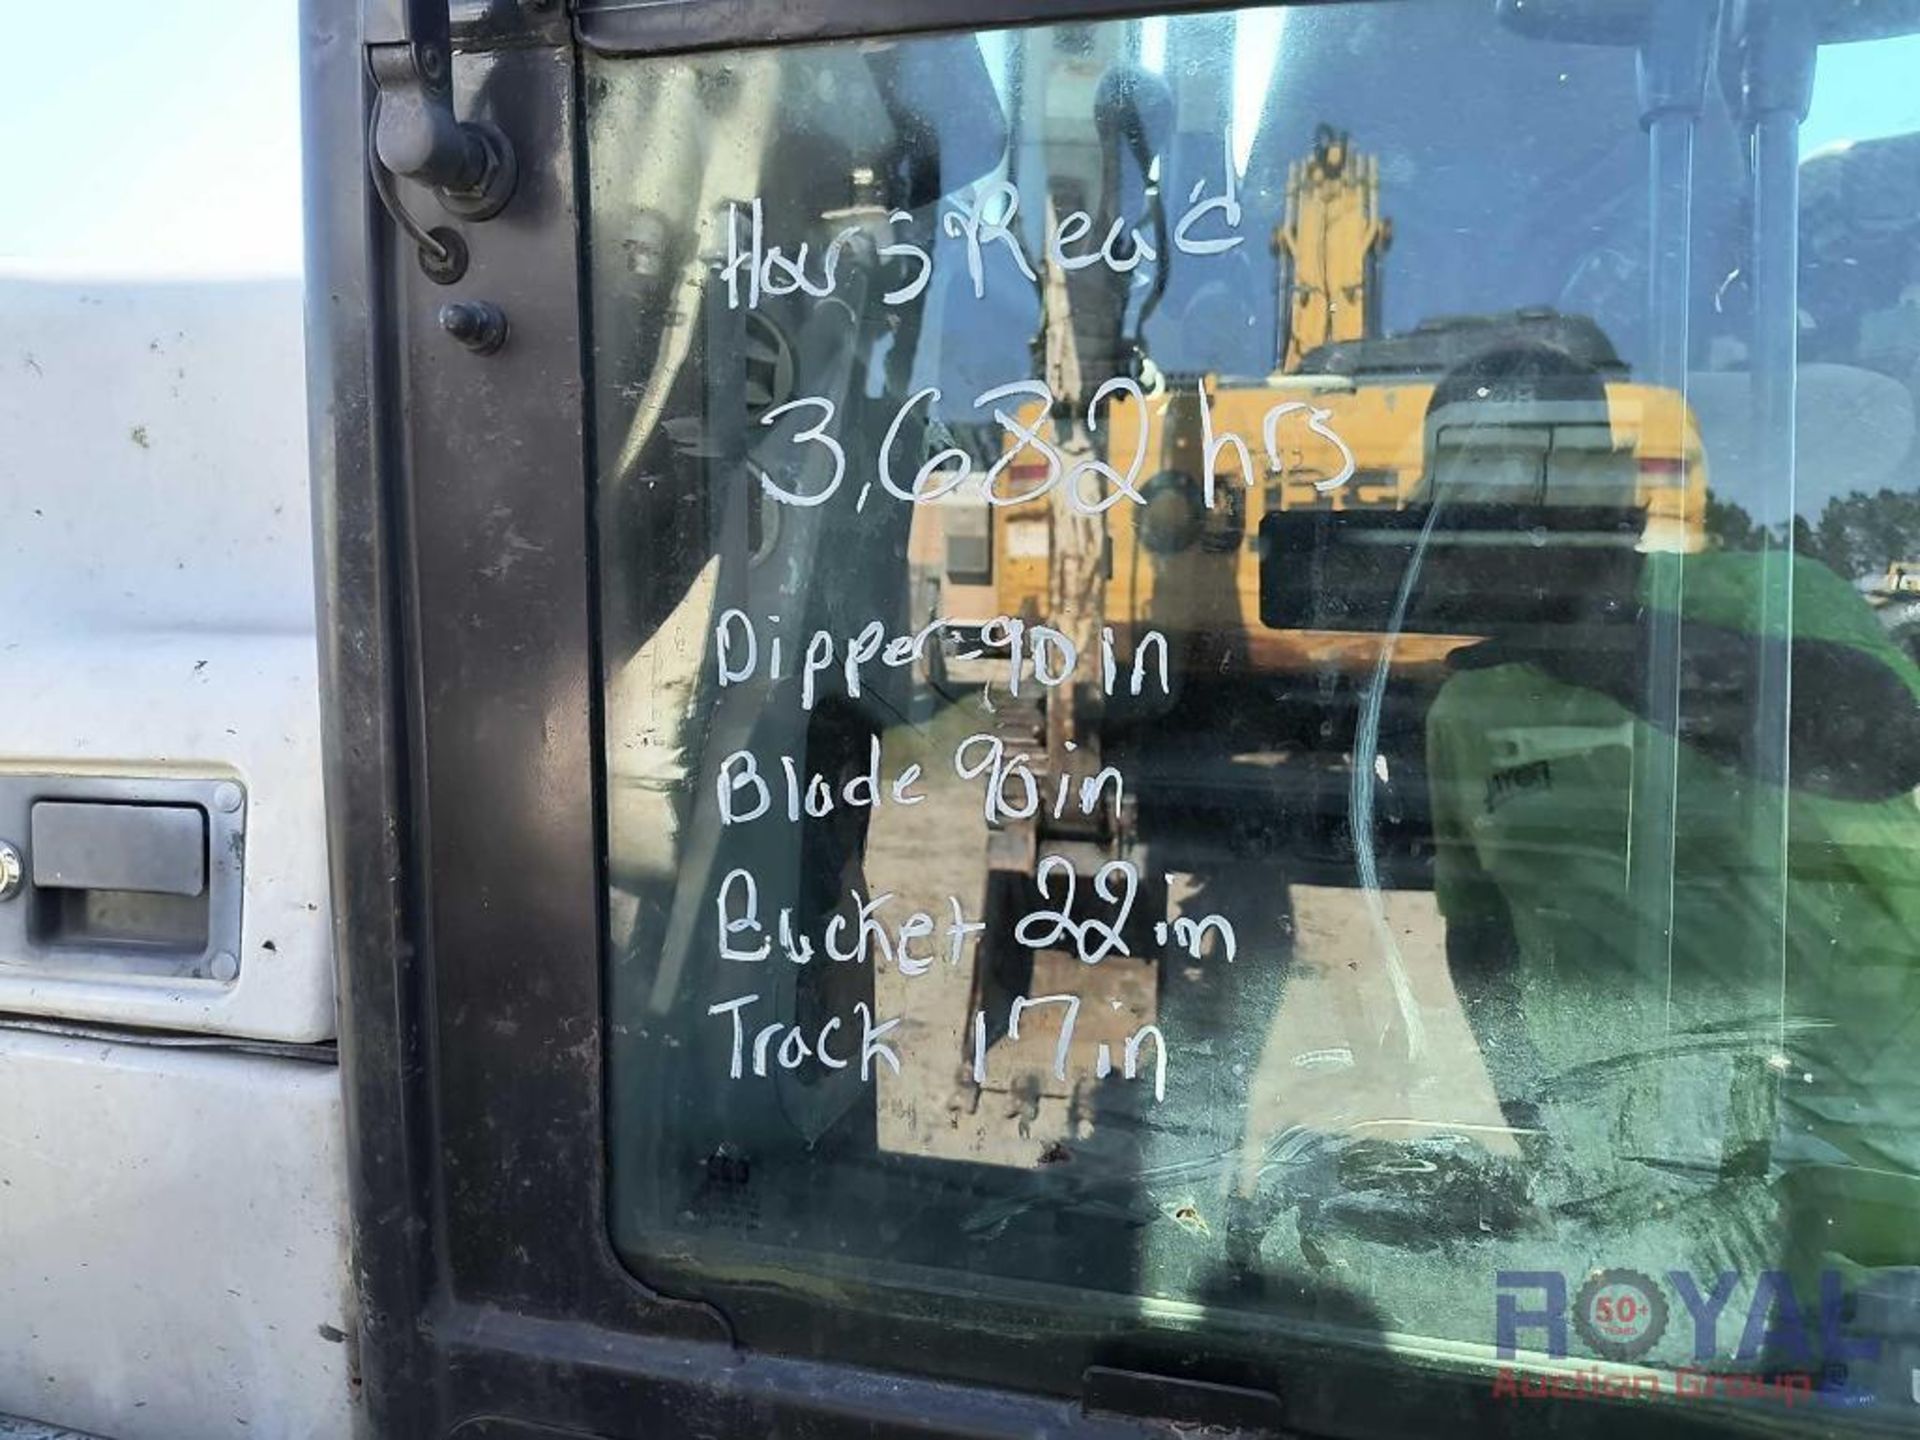 Hours Read
3,682 hrs
Dipper-90in
Blade 90in
Bucket 22in
Track 17in
ROYAL
50+
YEARS
Auction Group